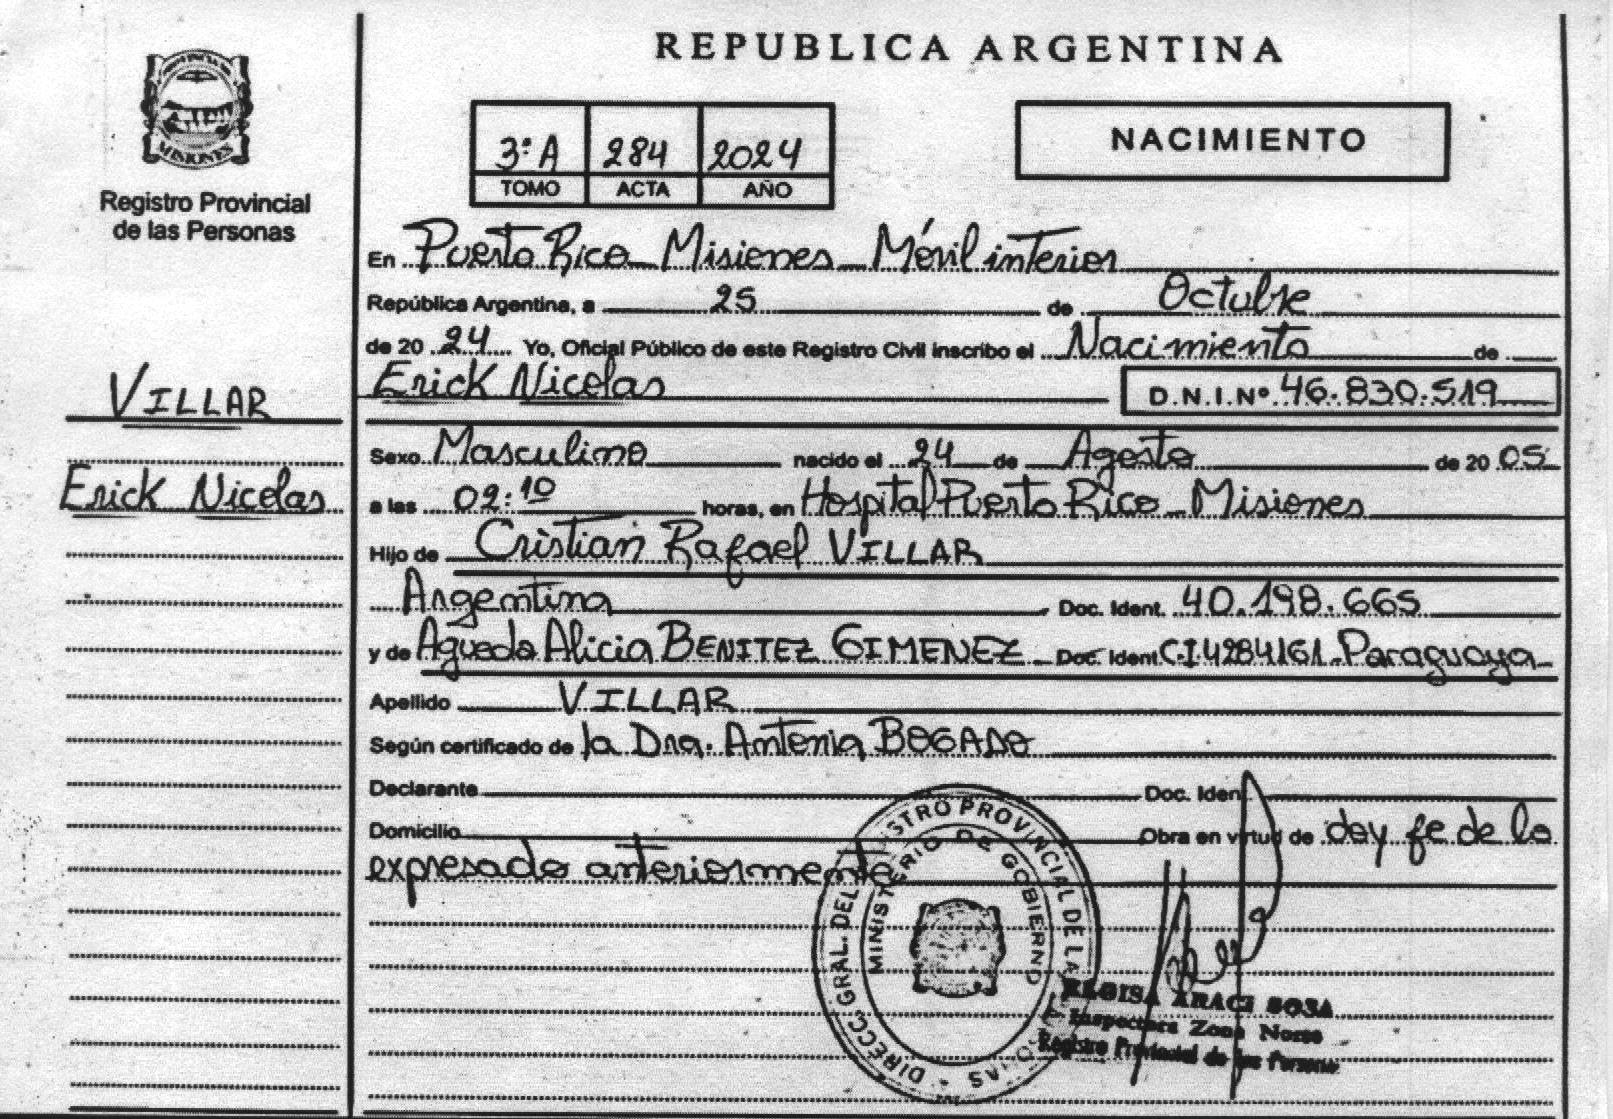 REPUBLICA ARGENTINA
PROVINCIA DE
MISIONES
Registro Provincial
de las Personas
3º A 284 2024
TOMO ACTA AÑO
NACIMIENTO
En Puerto Rico - Misiones - Móvil interior
República Argentina, a 25 de Octubre
de 20 24 Yo, Oficial Público de este Registro Civil inscribo el Nacimiento de
Erick Nicolas D.N.I.Nº 46.830.519
VILLAR
Erick Nicolas
Sexo Masculino nacido el 24 de Agosto de 20 05
a las 02:10 horas, en Hospital Puerto Rico - Misiones
Hijo de Cristian Rafael VILLAR
Argentina Doc. Ident. 40.198.665
y de Agueda Alicia BENITEZ GIMENEZ Doc. Ident C.I 4284161 - Paraguaya
Apellido VILLAR
Según certificado de la Dra. Antonia BOGADO
Declarante Doc. Ident.
Domicilio Obra en virtud de doy fe de lo
expresado anteriormente
DIRECC. GRAL. DEL REGISTRO PROVINCIAL DE LAS
MINISTERIO DE GOBIERNO
REGISA ARACI SOSA
Inspectora Zona Norte
Registro Provincial de las Personas